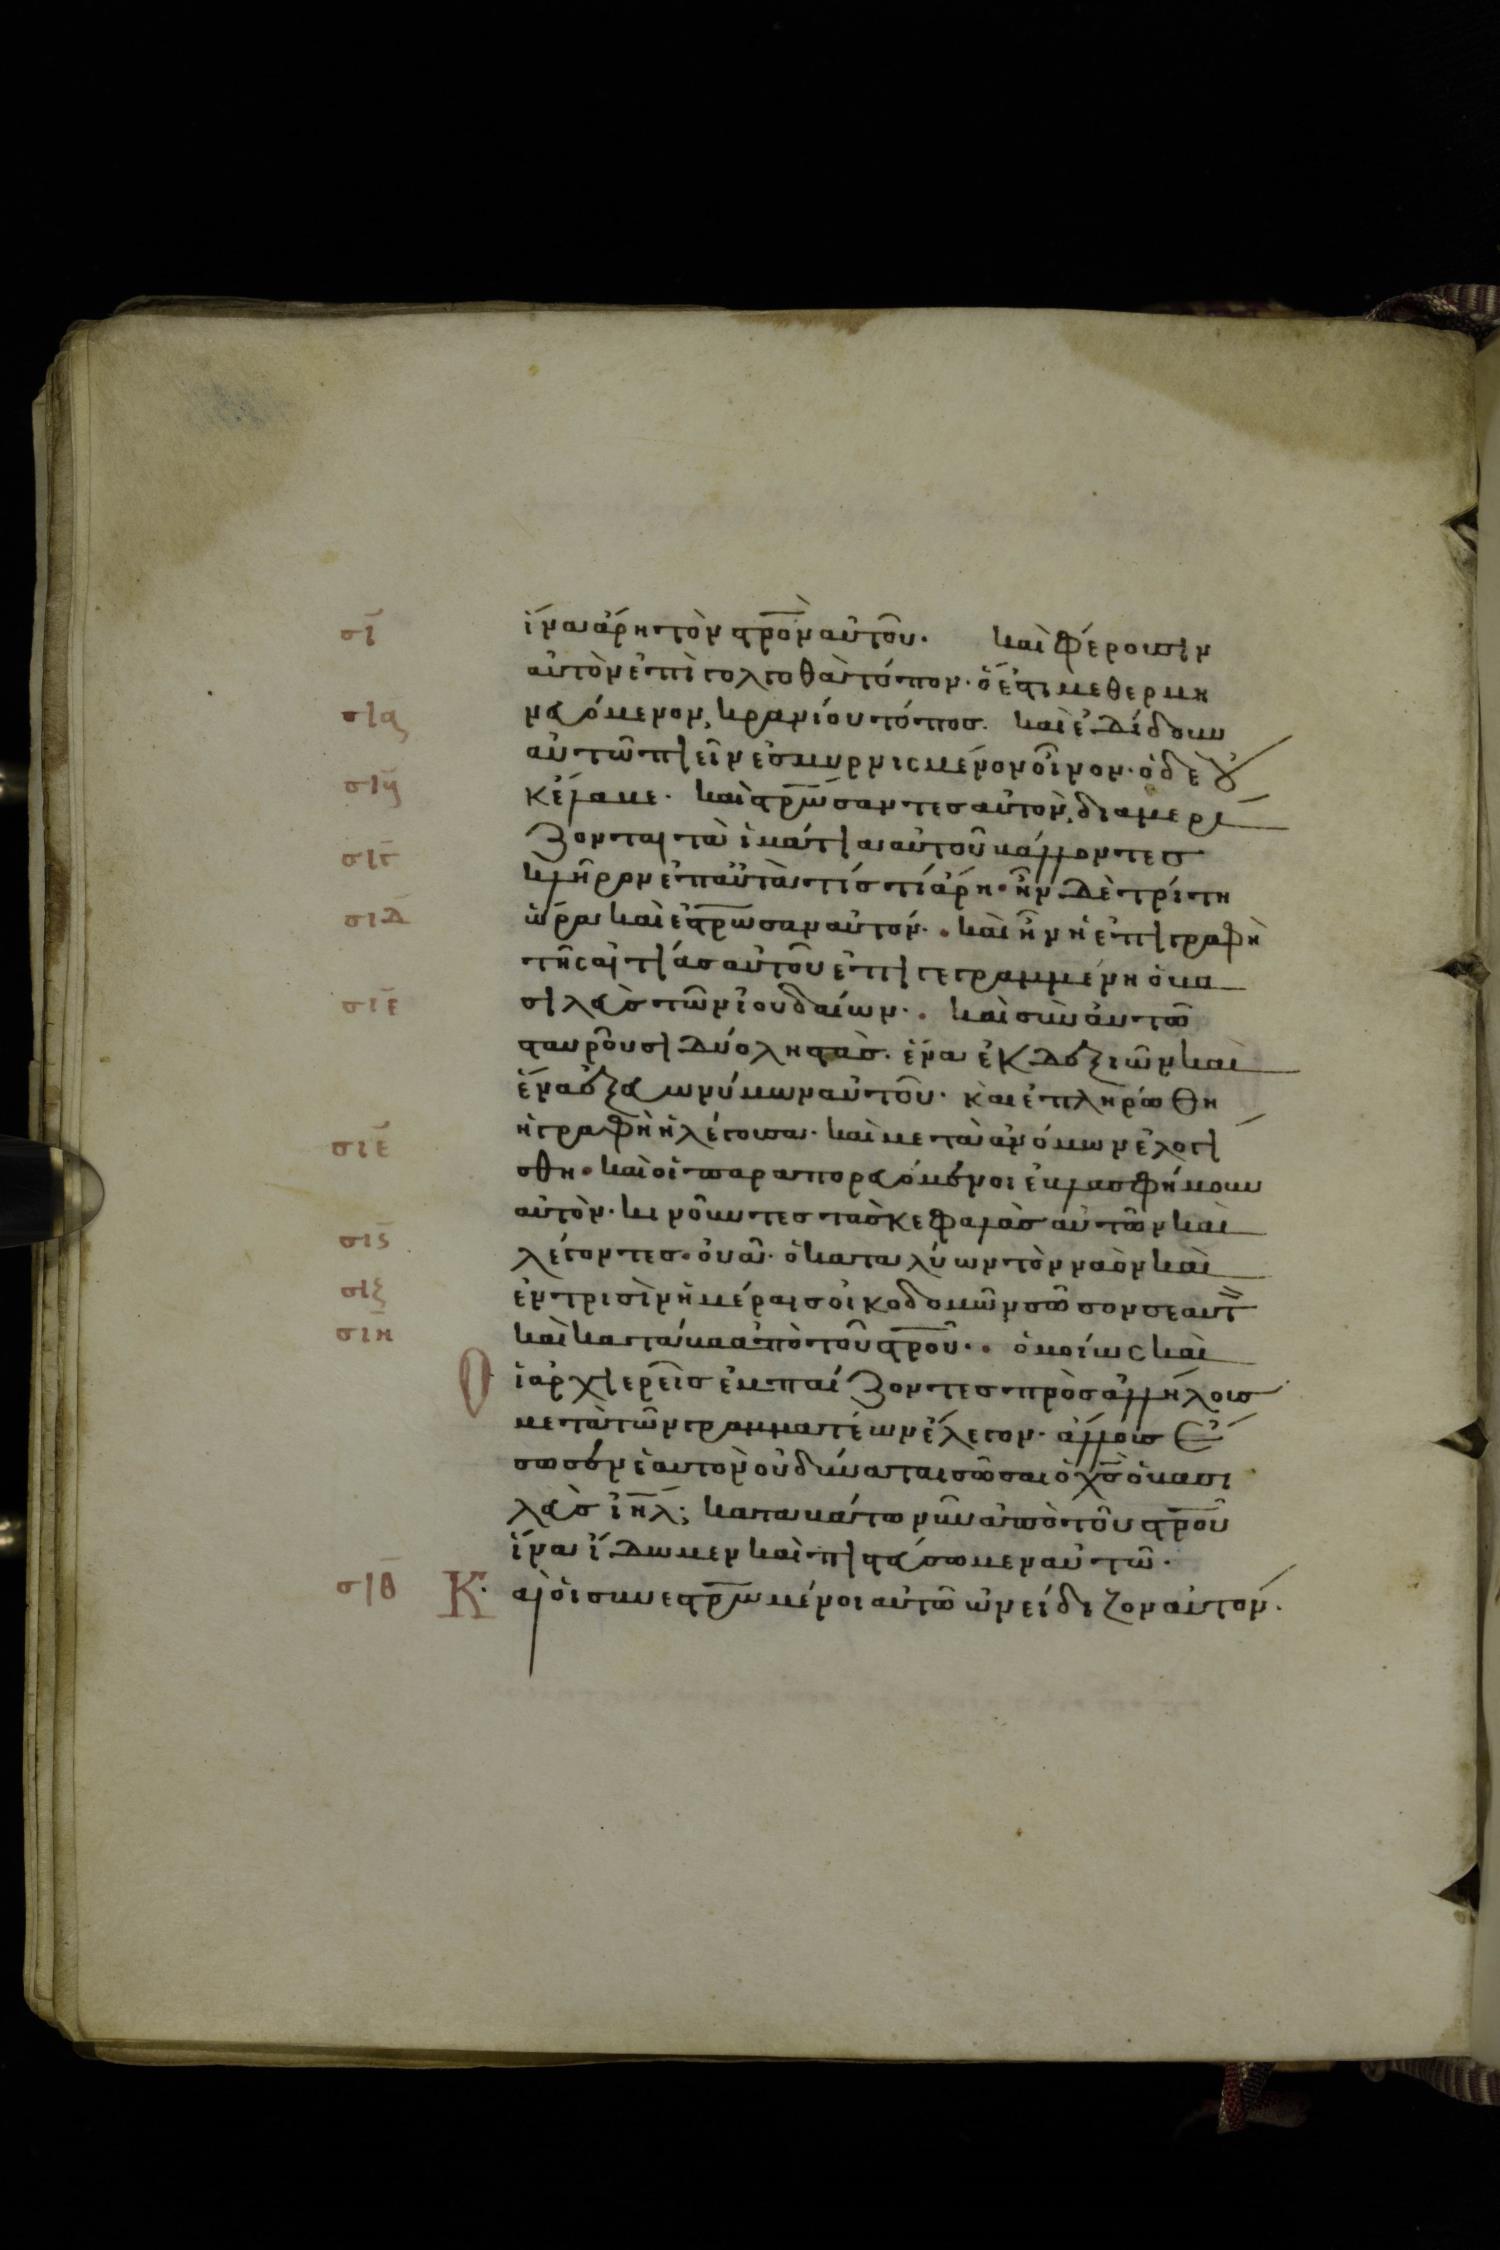 σῑ ἵνα ἄρη τὸν σ̅ρ̅ο̅ν̅ αὐτοῦ. καὶ φέρουσιν
αὐτὸν ἐπὶ γολγοθὰ τόπον. ὅ ἐστι μεθερμη
σια νευόμενον, κρανίου τόπος. καὶ ἐδίδουν
αὐτῶ πιεῖν ἐσμυρνισμένον οἶνον. ὁ δὲ οὐ
κ ἔλαβε. καὶ σ̅ρ̅ώσαντες αὐτὸν, διαμερί
ζονται τὰ ἱμάτια αὐτοῦ βάλλοντες
σιγ κλῆρον ἐπ αὐτὰ τίς τί ἄρη. ἦν δὲ τρίτη
σιδ ὥρα καὶ ἐσ̅ρ̅ωσαν αὐτόν. καὶ ἦν ἡ ἐπιγραφὴ
τῆς αἰτίας αὐτοῦ ἐπιγεγραμμένη ὁ βα
σιε σιλεὺς τῶν ἰουδαίων. καὶ σὺν αὐτῶ
σταυροῦσι δύο ληστὰς. ἕνα ἐκ δεξιῶν καὶ
ἕνα ἐξ εὐωνύμων αὐτοῦ. καὶ ἐπληρώθη
σιε ἡ γραφὴ ἡ λέγουσα. καὶ μετὰ ἀνόμων ἐλογί
σθη. καὶ οἱ παραπορευόμενοι ἐβλασφήμουν
αὐτὸν. κινοῦντες τὰς κεφαλὰς αὐτῶν καὶ
σις λέγοντες. οὐᾶ. ὁ καταλύων τὸν ναὸν καὶ
σιζ ἐν τρισὶν ἡμέραις οἰκοδομῶν σῶσον σεαυτ
σιη καὶ κατάβα ἀπὸ τοῦ σ̅ρ̅ο̅υ̅. ὁμοίως καὶ
Ο ἱ ἀρχιερεῖς ἐμπαίζοντες πρὸς ἀλλήλους
μετὰ τῶν γραμματέων ἔλεγον. ἄλλους ἔ
σωσεν ἑαυτὸν οὐ δύναται σῶσαι ὁ χ̅ς̅ ὁ βασι
λεὺς ἰ̅η̅λ̅; καταβάτω νῦν ἀπὸ τοῦ σ̅ρ̅ο̅υ̅
ἵνα ἴδωμεν καὶ πιστεύσωμεν αὐτῶ.
σιθ Κ αὶ οἱ συνεσ̅ρ̅ωμένοι αὐτῶ ὠνείδιζον αὐτόν.